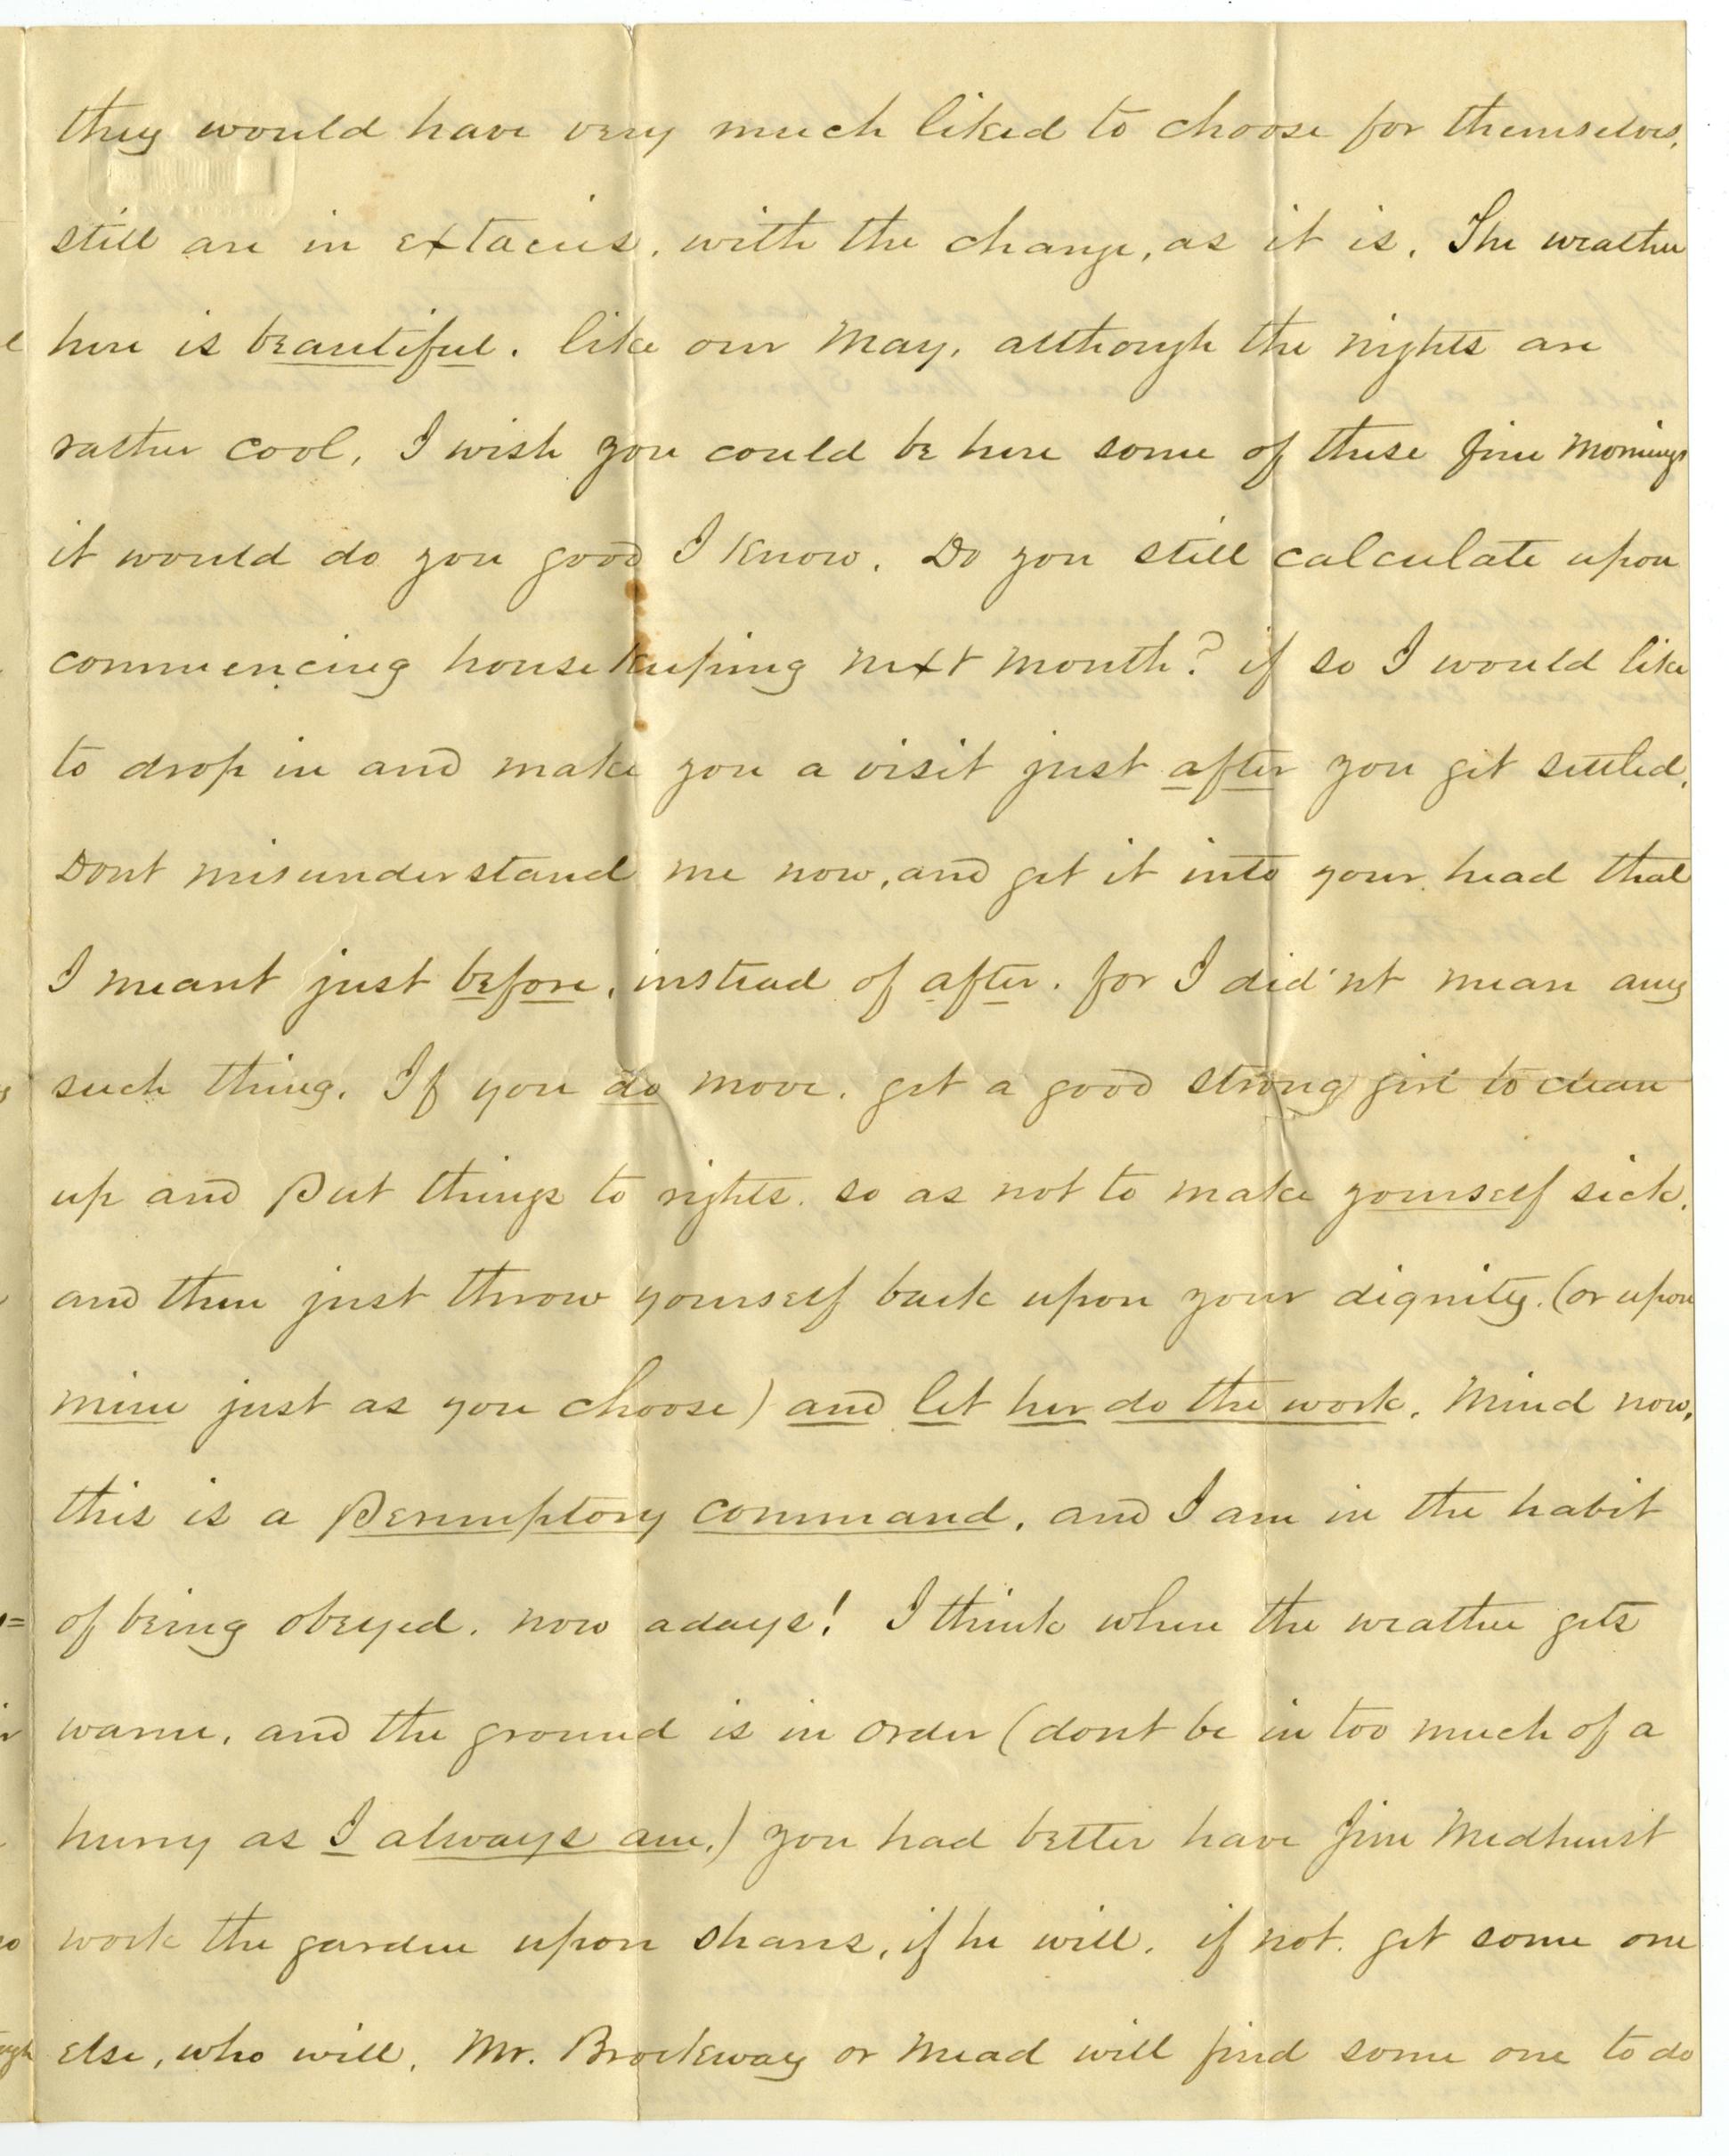 they would have very much liked to choose for themselves,
still are in extacies, with the change, as it is. The weather
here is beautiful. like our May, although the nights are
rather cool, I wish you could be here some of these fine mornings
it would do you good I know. Do you still calculate upon
commencing housekeeping next month? if so I would like
to drop in and make you a visit just after you get settled.
Dont misunderstand me now, and get it into your head that
I meant just before, instead of after. for I did'nt mean any
such thing. If you do move. get a good strong girl to clean
up and put things to rights. so as not to make yourself sick.
and then just throw yourself back upon your dignity. (or upon
mine just as you choose) and let her do the work. Mind now,
this is a peremptory command, and I am in the habit
of being obeyed. now adays! I think when the weather gets
warm, and the ground is in order (dont be in too much of a
hurry as I always am.) you had better have Jim Medhurst
work the garden upon shares, if he will. if not. get some one
else, who will. Mr. Brockway or Mead will find some one to do